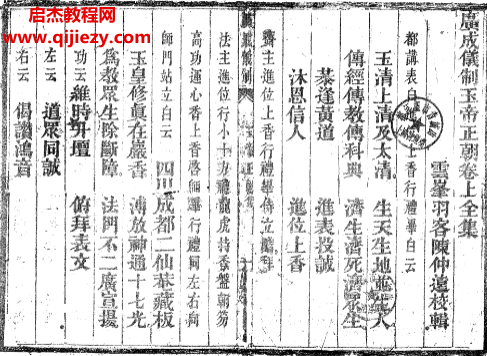 启杰教程网
www.qijiezy.com
廣成儀制玉帝正朝卷上全集
雲峯羽客陳仲遠校輯
都講表白 上香行禮畢白云
玉清上清及太清 生天生地 生人
傳經傳教傳科典 濟生濟死濟 生
恭逢黃道 進表投誠
沐恩信人 進位上香
齋主進位上香行禮畢侍立
法主進位行小十 禮龍虎持香盤朝笏
高功運心香上香啓師畢行禮何左右
師門站立白云 四川成都二仙菴藏板
玉皇修真在嚴香 溥放神通十七光
為教眾生除斷障 法門不二廣宣揚
功云 維時昇壇 俯拜表文
左云 道眾同誠
右云 偈讚鴻音